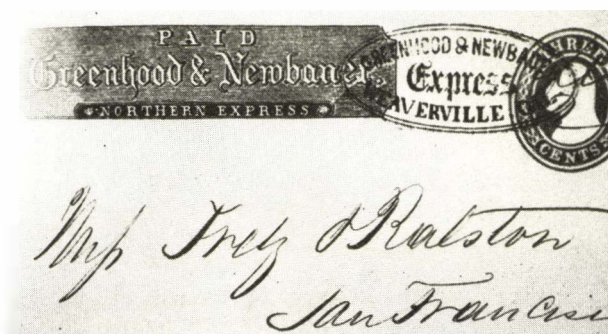 PAID
Greenhood & Newbauer.
NORTHERN EXPRESS
GREENHOOD & NEWBAU
Express
WEAVERVILLE
THREE
CENTS
Fretz & Ralston
San Francisc